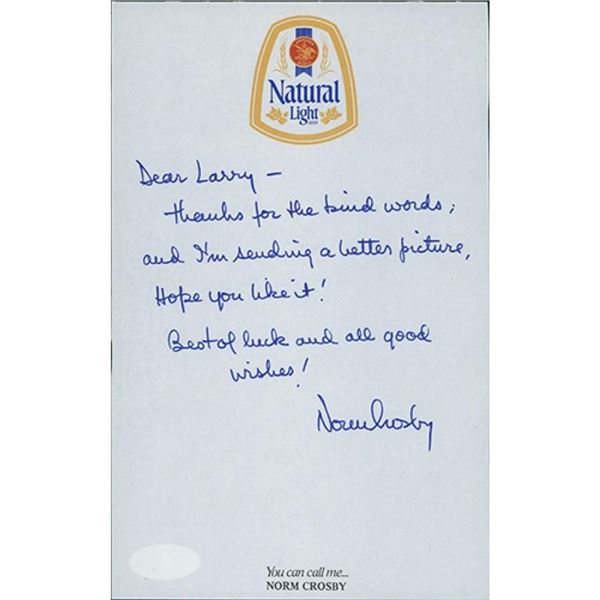 Natural
Light
Dear Larry –
thanks for the kind words;
and I'm sending a better picture,
Hope you like it!
Best of luck and all good
wishes!
Norm Crosby
You can call me...
NORM CROSBY